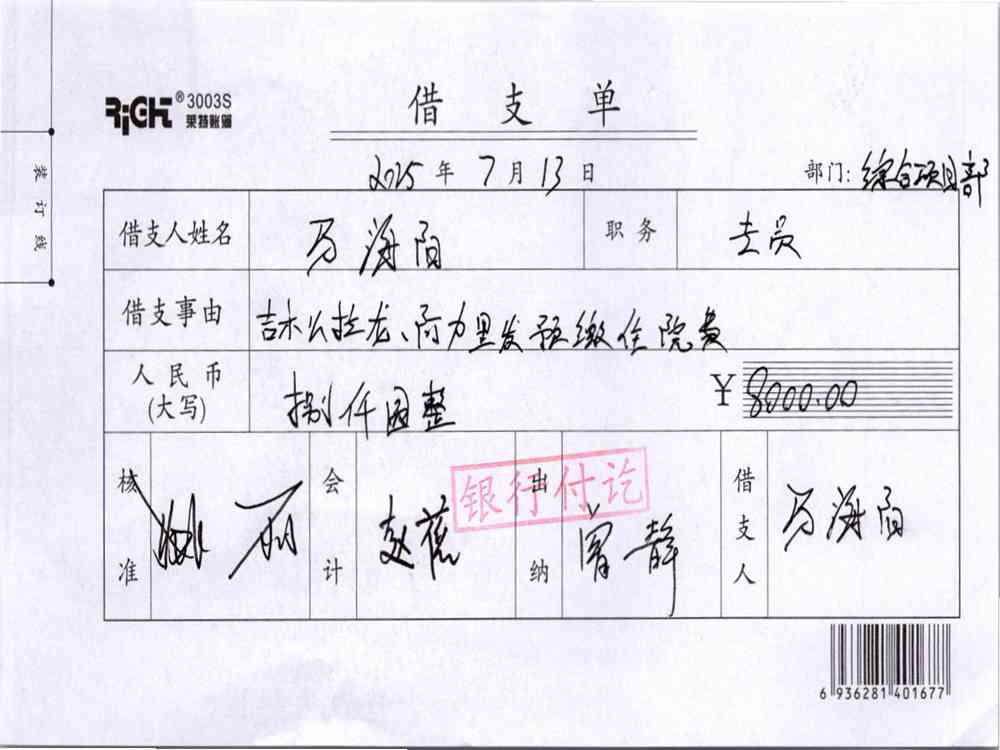 RiCH® 3003S
莱特账簿
借支单
2025年7月13日
部门:综合项目部
装订线
借支人姓名 万海阳 职务 专员
借支事由 吉木公拉龙、阿力里发预缴住院费
人民币(大写) 捌仟圆整 ￥8000.00
银行付讫
核准 会计 赵蕊 出纳 曾静 借支人 万海阳
6 936281 401677